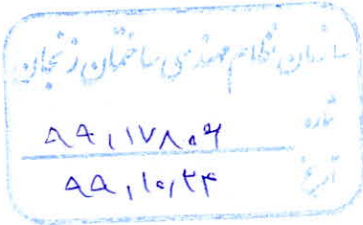 سازمان نظام مهندسی ساختمان زنجان
شماره ۹۹٫۱۷۸۰۶
تاریخ ۹۹٫۱۰٫۲۴